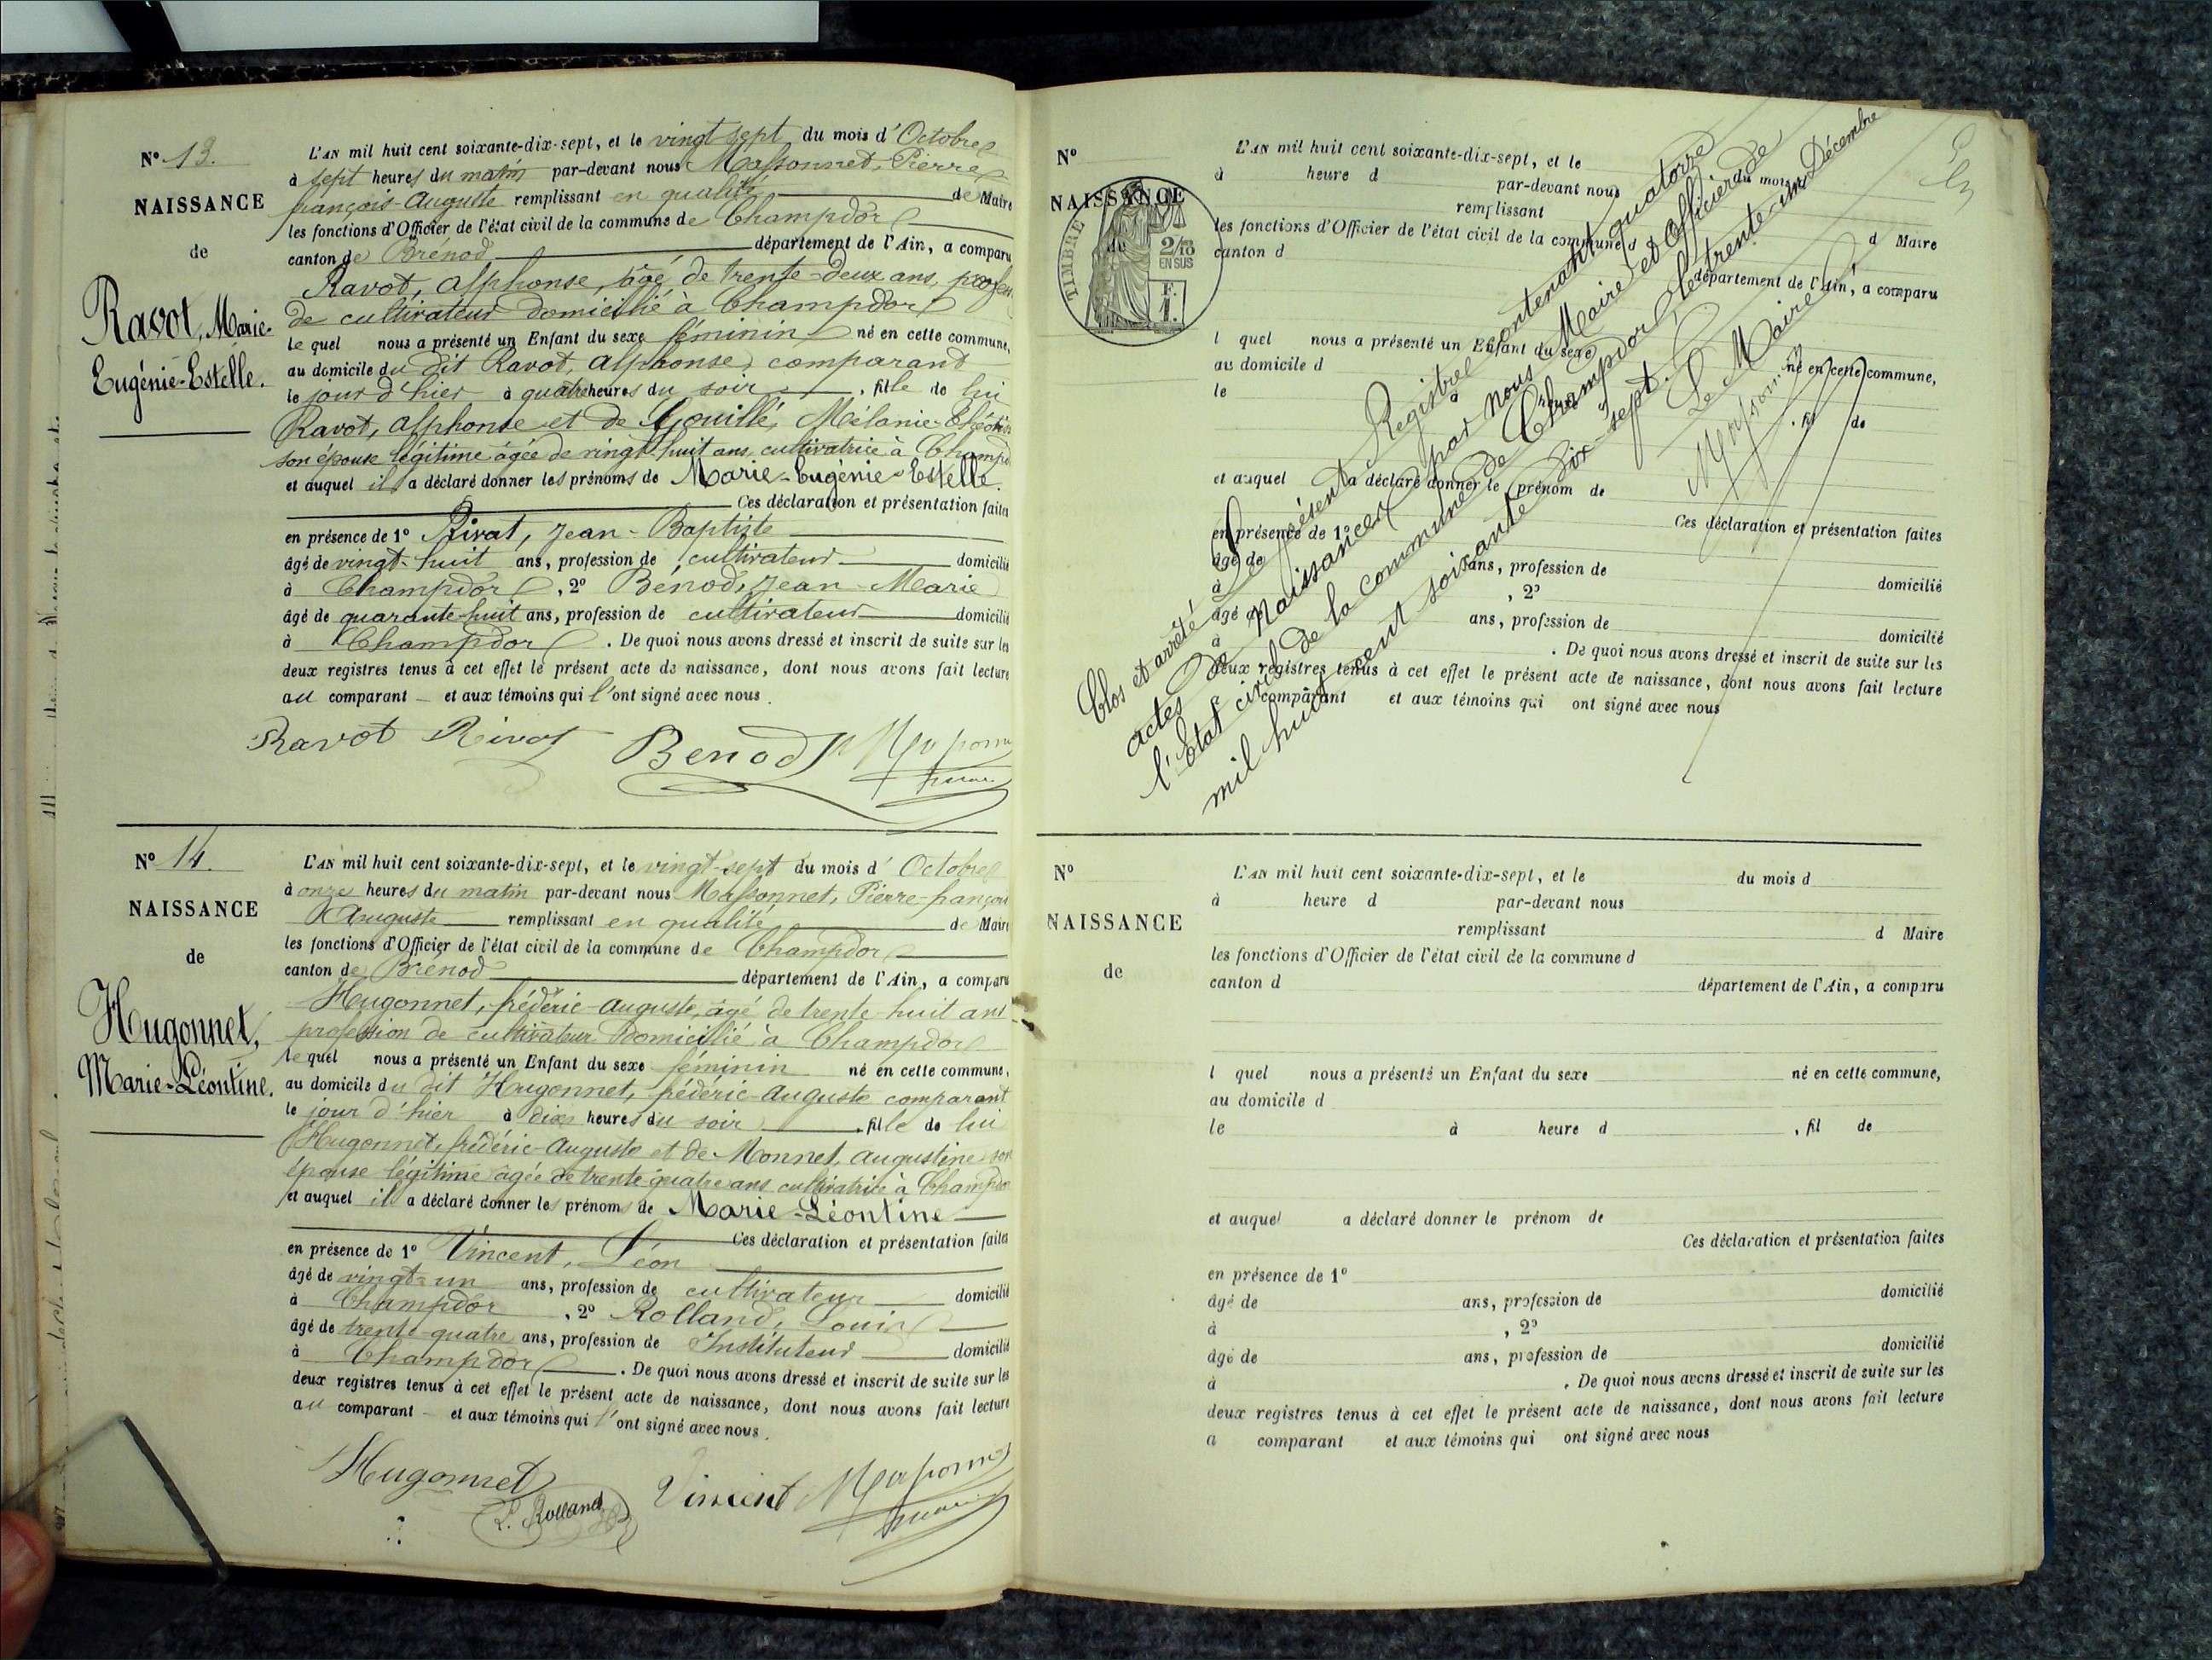 N° 13.
NAISSANCE
de
Ravot, Marie-
Eugénie-Estelle.
L'AN mil huit cent soixante-dix-sept, et le vingt sept du mois d'Octobre
à sept heures du matin par-devant nous Massonnet, Pierre
françois-Auguste remplissant en qualité de Maire
les fonctions d'Officier de l'état civil de la commune de Champdor
canton de Brénod, département de l'Ain, a comparu
Ravot, Alphonse, âgé de trente-deux ans, profess.
de cultivateur domicilié à Champdor
le quel nous a présenté un Enfant du sexe féminin né en cette commune,
au domicile du dit Ravot, Alphonse, comparant
le jour d'hier à quatre heures du soir, fille de lui
Ravot, Alphonse et de Gouillé, Mélanie
son épouse légitime âgée de vingt huit ans, cultivatrice à Champd
et auquel il a déclaré donner les prénoms de Marie-Eugénie-Estelle.
Ces déclaration et présentation faites
en présence de 1° Rivat, Jean-Baptiste
âgé de vingt-huit ans, profession de cultivateur domicilié
à Champdor, 2° Bénod, Jean-Marie
âgé de quarante-huit ans, profession de cultivateur domicilié
à Champdor. De quoi nous avons dressé et inscrit de suite sur les
deux registres tenus à cet effet le présent acte de naissance, dont nous avons fait lecture
au comparant et aux témoins qui l'ont signé avec nous.
Ravot Rivat Benod
N° 14.
NAISSANCE
de
Hugonnet,
Marie-Léontine.
L'AN mil huit cent soixante-dix-sept, et le vingt-sept du mois d'Octobre
à onze heures du matin par-devant nous Massonnet, Pierre-françois
Auguste remplissant en qualité de Maire
les fonctions d'Officier de l'état civil de la commune de Champdor
canton de Brénod département de l'Ain, a comparu
Hugonnet, frédéric-Auguste, âgé de trente-huit ans
profession de cultivateur domicilié à Champdor
le quel nous a présenté un Enfant du sexe féminin né en cette commune,
au domicile du dit Hugonnet, frédéric-Auguste comparant
le jour d'hier à dix heures du soir, fille de lui
Hugonnet, frédéric-Auguste et de Monnet, Augustine son
épouse légitime âgée de trente quatre ans cultivatrice à Champdor
et auquel il a déclaré donner les prénoms de Marie-Léontine
Ces déclaration et présentation faites
en présence de 1° Vincent, Léon
âgé de vingt-un ans, profession de cultivateur domicilié
à Champdor, 2° Rolland, Louis
âgé de trente-quatre ans, profession de Instituteur domicilié
à Champdor. De quoi nous avons dressé et inscrit de suite sur les
deux registres tenus à cet effet le présent acte de naissance, dont nous avons fait lecture
au comparant et aux témoins qui l'ont signé avec nous.
Hugonnet L. Rolland Vincent
N°
NAISSANCE
de
TIMBRE
2/10
EN SUS
F.
1.
L'AN mil huit cent soixante-dix-sept, et le du mois
à heure d par-devant nous
remplissant d Maire
les fonctions d'Officier de l'état civil de la commune d
canton d département de l'Ain, a comparu
l quel nous a présenté un Enfant du sexe né en cette commune,
au domicile d
le à heure d, fil de
et auquel a déclaré donner le prénom de
Ces déclaration et présentation faites
en présence de 1°
âgé de ans, profession de domicilié
à , 2°
âgé de ans, profession de domicilié
à . De quoi nous avons dressé et inscrit de suite sur les
deux registres tenus à cet effet le présent acte de naissance, dont nous avons fait lecture
a comparant et aux témoins qui ont signé avec nous
Clos et arrêté le présent Registre contenant quatorze
actes de Naissances par nous Maire et Officier de
l'Etat civil de la commune de Champdor, le trente-un Décembre
mil huit cent soixante dix-sept.
Le Maire
N°
NAISSANCE
de
L'AN mil huit cent soixante-dix-sept, et le du mois d
à heure d par-devant nous
remplissant d Maire
les fonctions d'Officier de l'état civil de la commune d
canton d département de l'Ain, a comparu
l quel nous a présenté un Enfant du sexe né en cette commune,
au domicile d
le à heure d , fil de
et auquel a déclaré donner le prénom de
Ces déclaration et présentation faites
en présence de 1°
âgé de ans, profession de domicilié
à , 2°
âgé de ans, profession de domicilié
à . De quoi nous avons dressé et inscrit de suite sur les
deux registres tenus à cet effet le présent acte de naissance, dont nous avons fait lecture
a comparant et aux témoins qui ont signé avec nous